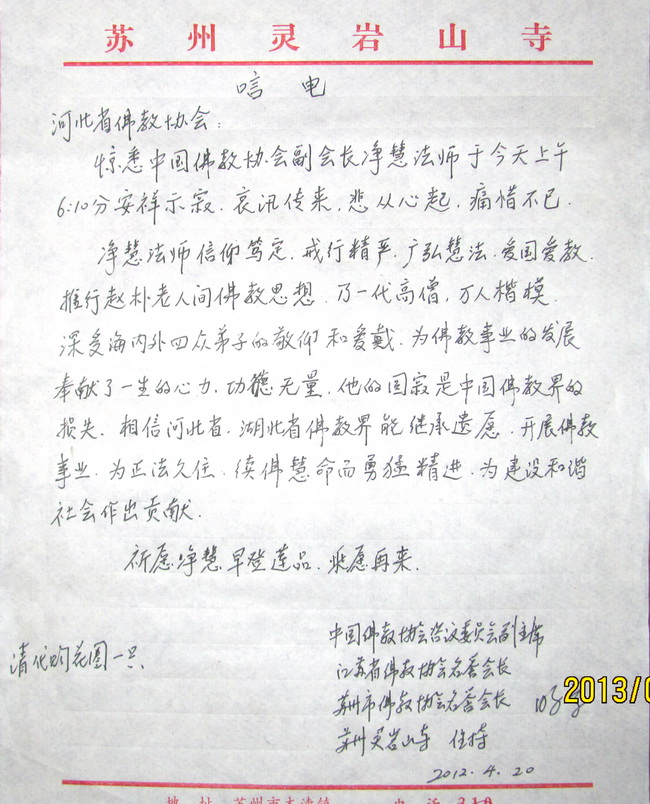 苏州灵岩山寺
唁电
河北省佛教协会:
惊悉中国佛教协会副会长净慧法师于今天上午
6:10分安祥示寂.哀讯传来,悲从心起,痛惜不已.
净慧法师信仰笃定.戒行精严.广弘慧法.爱国爱教.
推行赵朴老人间佛教思想.乃一代高僧,万人楷模.
深受海内外四众弟子的敬仰和爱戴.为佛教事业的发展
奉献了一生的心力.功德无量.他的圆寂是中国佛教界的
损失.相信河北省.湖北省佛教界能继承遗愿.开展佛教
事业.为正法久住.续佛慧命而勇猛精进.为建设和谐
社会作出贡献.
祈愿净慧早登莲品.乘愿再来.
中国佛教协会咨议委员会副主席
请代购花圈一只
江苏省佛教协会名誉会长
苏州市佛教协会名誉会长
2013/0
苏州灵岩山寺 住持
2012.4.20
地址 苏州市木渎镇 电话